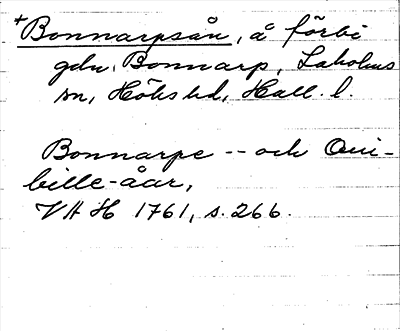 + Bonnarpsån, å förbi
gdn. Bonnarp, Laholms
sn, Höks hd, Hall. l.
Bonnarpe -- och Qui-
bille-åar,
VAH 1761, s. 266.